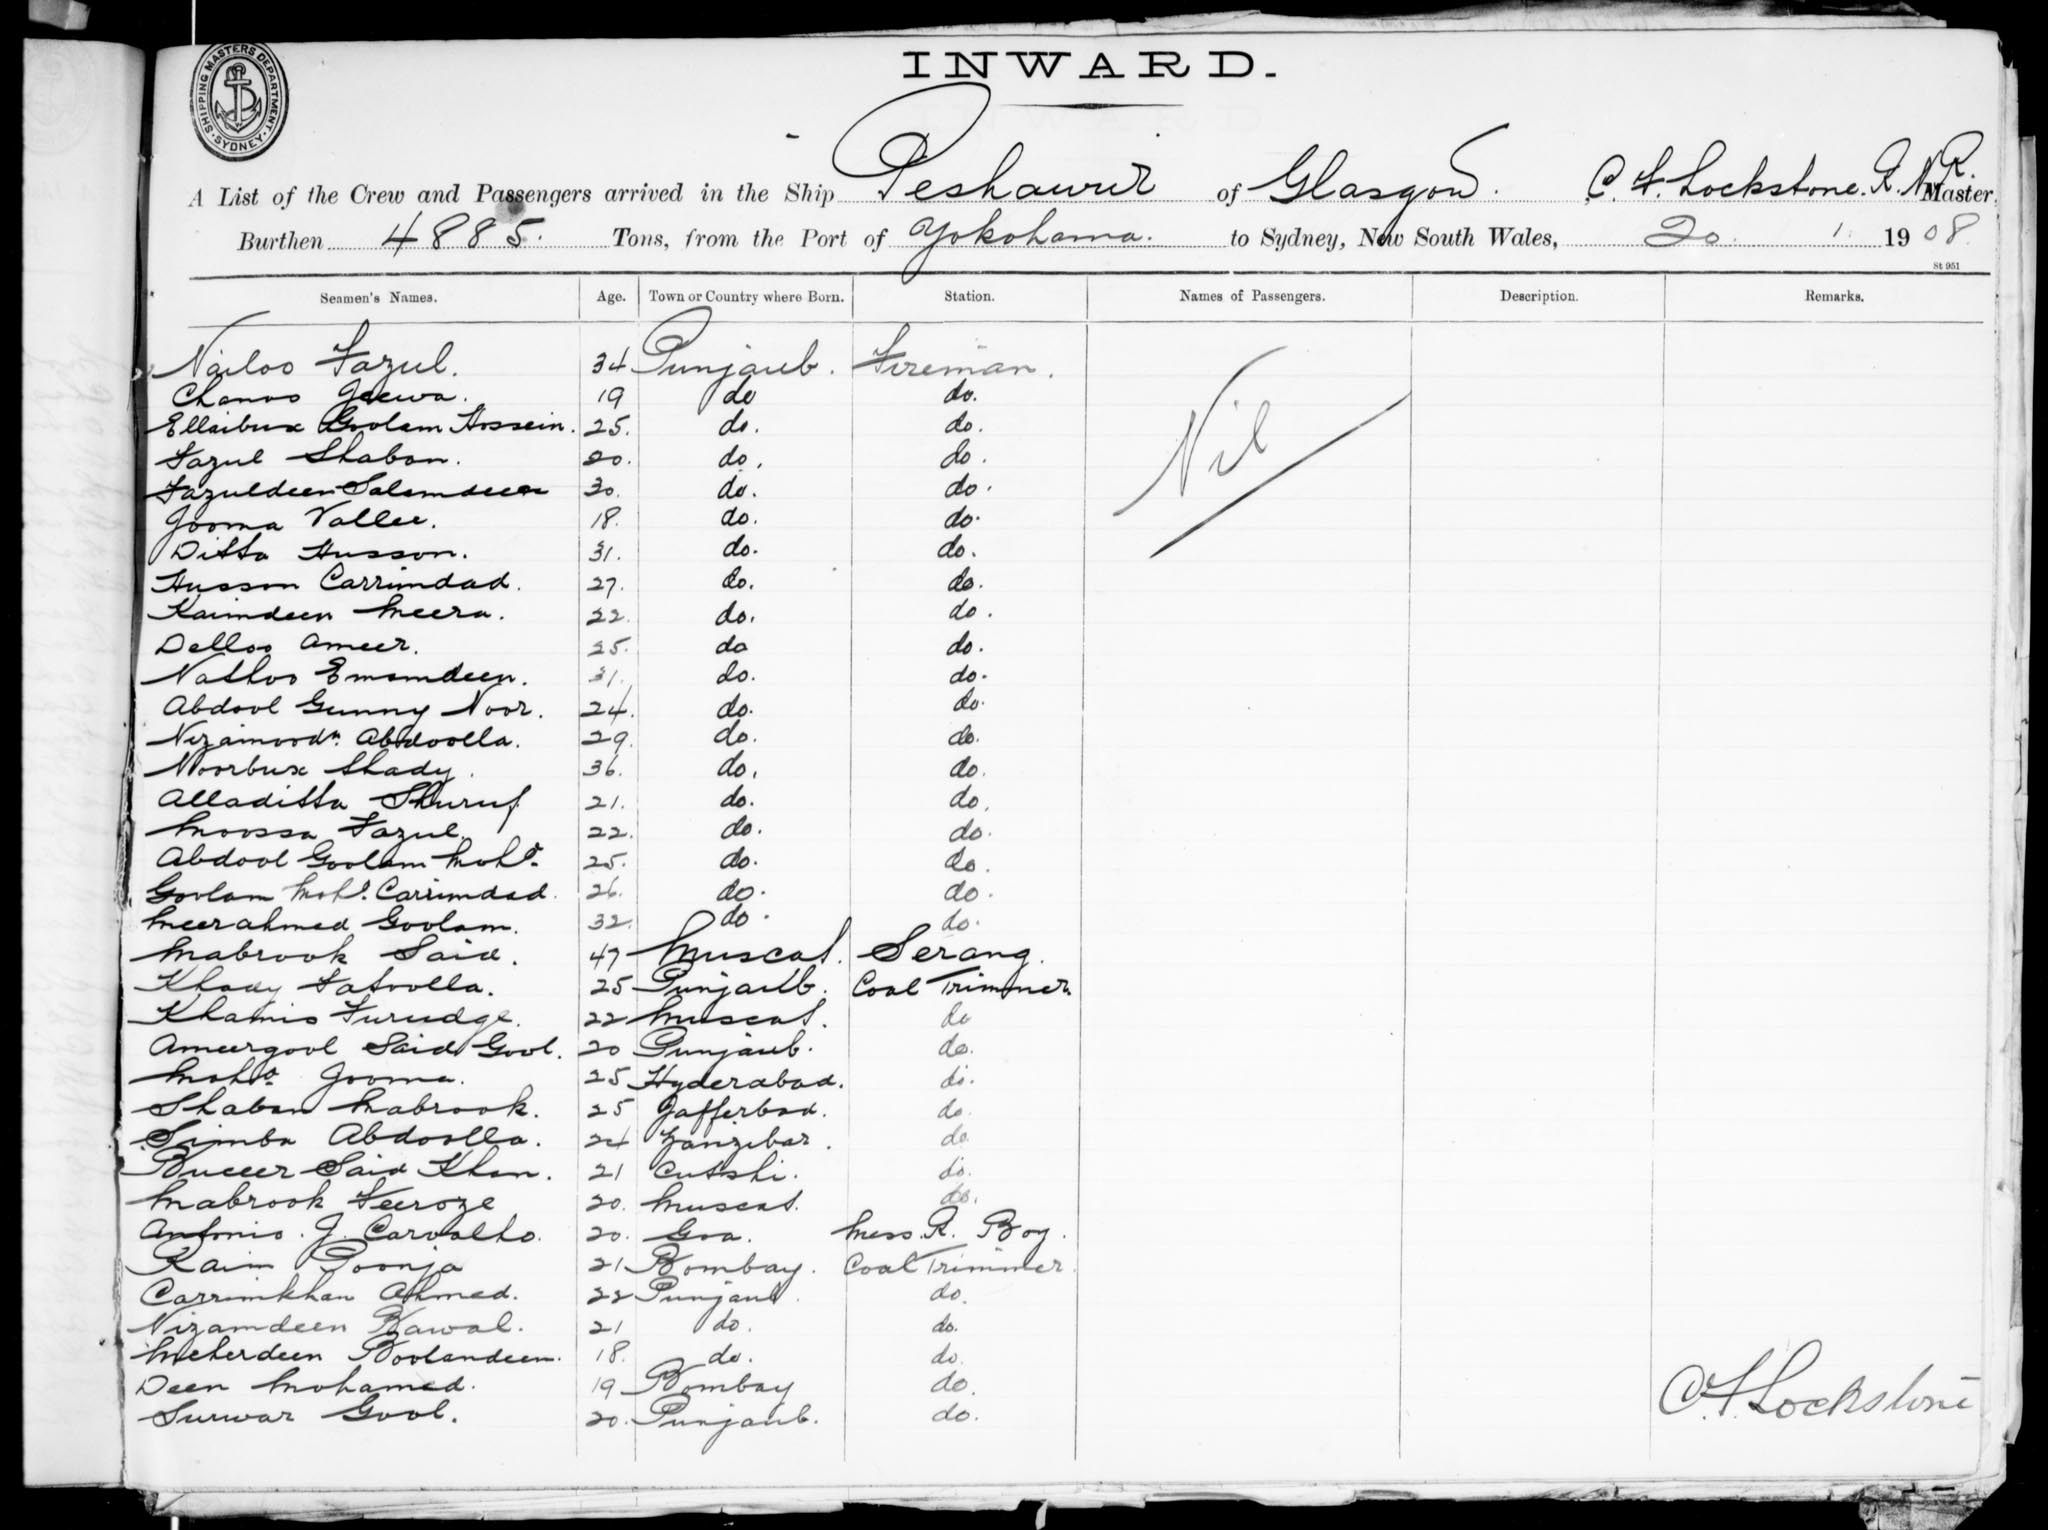 SHIPPING MASTERS DEPARTMENT SYDNEY
INWARD.
A List of the Crew and Passengers arrived in the Ship Peshawur of Glasgow. C. F. Lockstone. R. N. R. Master,
Burthen 4885. Tons, from the Port of Yokohama. to Sydney, New South Wales, 20. 1. 1908.
St 951
Seamen's Names. Age. Town or Country where Born. Station. Names of Passengers. Description. Remarks.
Nailoo Fazul. 34 Punjaub. Fireman.
Nil
Chanoo Jeewa. 19 do do.
Ellaibux Goolam Hossein. 25. do. do.
Fazul Shaban. 20. do. do.
Fazuldeen Salamdeen 30. do. do.
Jooma Vallee. 18. do. do.
Ditta Husson. 31. do. do.
Husson Carrimdad. 27. do. do.
Kaimdeen Meera. 22. do. do.
Delloo Ameer. 25. do do.
Nathoo Emamdeen. 31. do. do.
Abdool Gunny Noor. 24. do. do.
Nizamoodn. Abdoolla. 29. do. do.
Noorbux Shady. 36. do. do.
Alladitta Shuruf 21. do. do.
Moossa Fazul. 22. do. do.
Abdool Goolam Mohd. 25. do. do.
Goolam Mohd. Carrimdad. 26. do. do.
Meerahmed Goolam. 32. do. do.
Mabrook Said. 47 Muscat. Serang.
Khady Fatoolla. 25 Punjaub. Coal Trimmer.
Khamis Furudge. 22 Muscat. do
Ameergool Said Gool. 20 Punjaub. do.
Mohd. Jooma. 25 Hyderabad. do.
Shaban Mabrook. 25 Jafferbad. do.
Simba Abdoolla. 24 Zanzibar. do
Said Khan. 21 Cutshi. do.
Mabrook Feeroze 20. Muscat. do.
Antonio. J. Carvalho. 20. Goa. Mess. R. Boy.
Raim Poonja 21 Bombay. Coal Trimmer.
Carrimkhan Ahmed. 22 Punjaub. do.
Nizamdeen Rawal. 21 do. do.
Meherdeen Boolandeen. 18. do. do.
Deen Mohamed. 19 Bombay do.
Surwar Gool. 20. Punjaub. do.
C. F. Lockstone